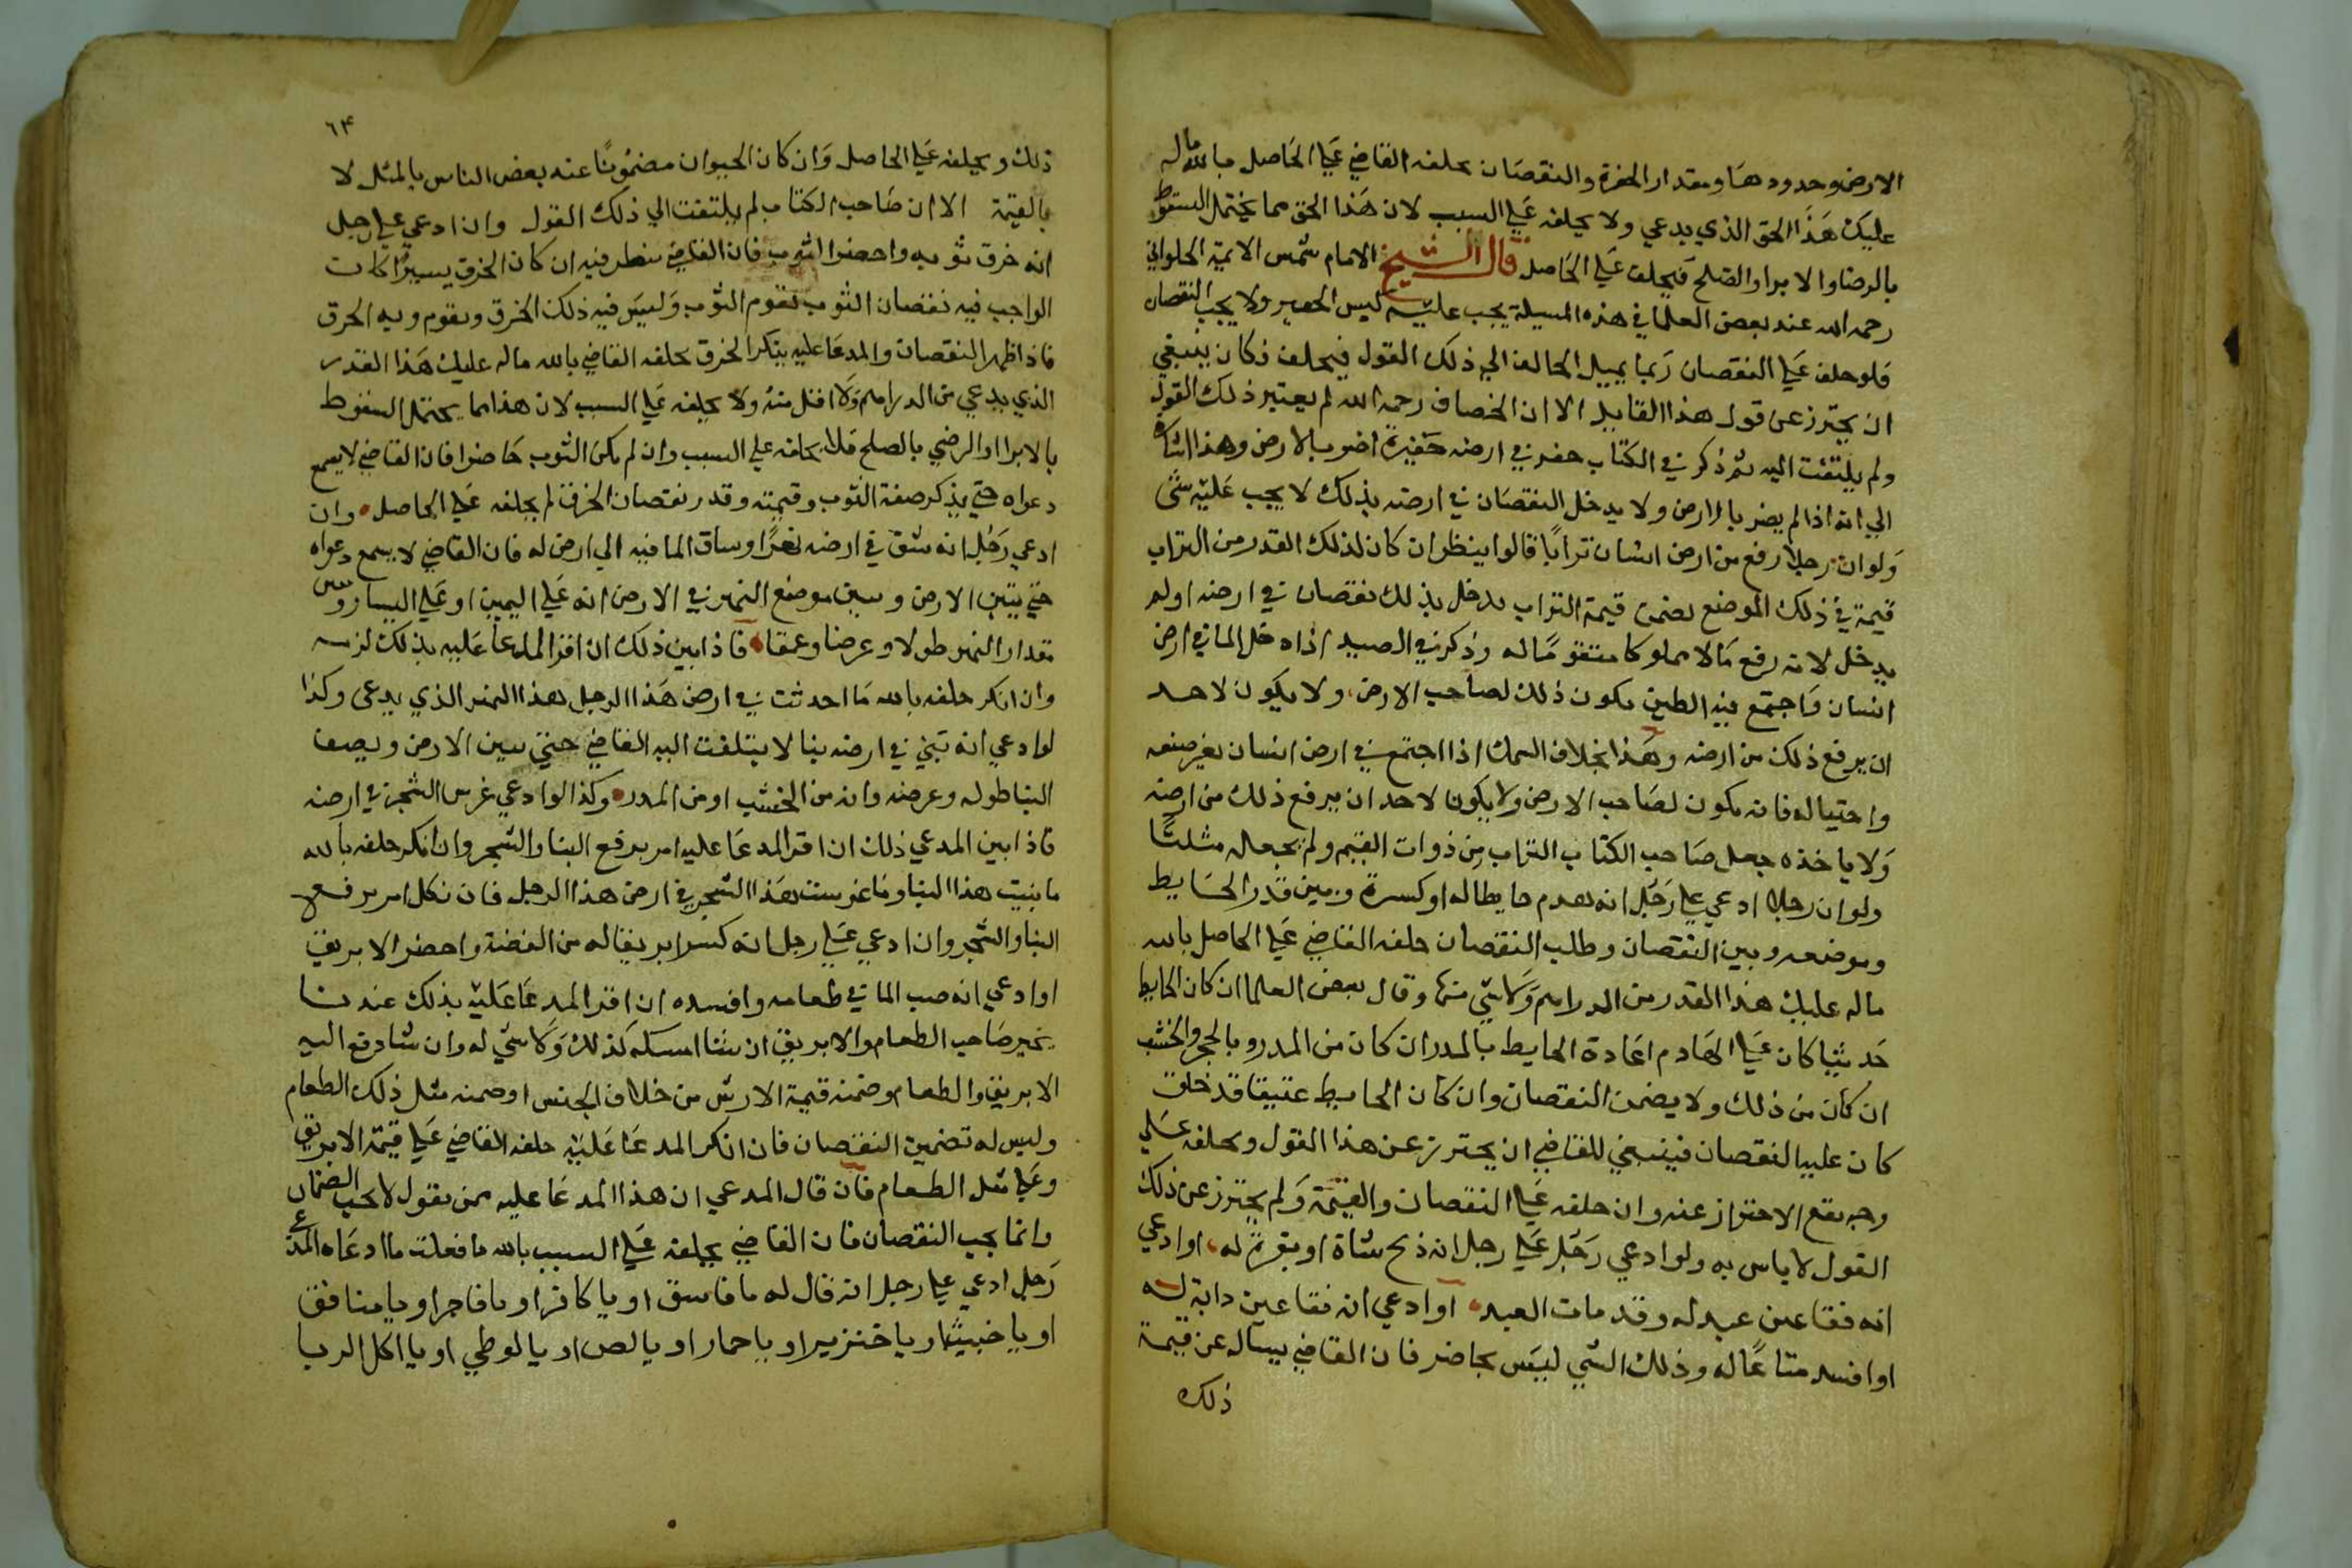 الارض وحدودها ومقدار الحفرة والنقصان يحلفه القاضي علي الحاصل بالله ماله
عليك هذا الحق الذي يدعي ولا يحلفه علي السبب لان هذا الحق مما يحتمل السقوط
بالرضا والابرا والصلح فيحلف علي الحاصل قال الشيخ الامام شمس الايمة الحلواني
رحمه الله عند بعض العلما في هذه المسيلة يجب عليه كبس الحفير ولا يجب النقصان
فلو حلف علي النقصان ربما يميل الحالف الي ذلك القول فيحلف فكان ينبغي
ان يحترز عن قول هذا القايل الا ان الخصاف رحمه الله لم يعتبر ذلك القول
ولم يلتفت اليه ثم ذكر في الكتاب حفر في ارضه حفيرة اضر بالارض وهذا اشارة
الي انه اذا لم يضر بالارض ولا يدخل النقصان في ارضه بذلك لا يجب عليه شي
ولو ان رجلا رفع من ارض انسان ترابا قالوا ينظر ان كان لذلك القدر من التراب
قيمة في ذلك الموضع يضمن قيمة التراب يدخل بذلك نقصان في ارضه اولم
يدخل لانه رفع مالا مملوكا متقوما له وذكر في الصيد اذا دخل الما في ارض
انسان واجتمع فيه الطين يكون ذلك لصاحب الارض ولا يكون لاحد
ان يرفع ذلك من ارضه وهذا بخلاف السمك اذا اجتمع في ارض انسان بغير صنعه
واحتياله فانه يكون لصاحب الارض ولا يكون لاحد ان يرفع ذلك من ارضه
ولا ياخذه جعل صاحب الكتاب التراب من ذوات القيم ولم يجعله مثليا
ولو ان رجلا ادعي علي رجل انه هدم حايطا له او كسره وبين قدر الحايط
وموضعه وبين النقصان وطلب النقصان حلفه القاضي علي الحاصل بالله
ماله عليك هذا القدر من الدراهم ولا شي منها وقال بعض العلما ان كان الحايط
حديثا كان علي الهادم اعادة الحايط بالمدر ان كان من المدر وبالحجر والخشب
ان كان من ذلك ولا يضمن النقصان وان كان الحايط عتيقا قد خلق
كان عليه النقصان فينبغي للقاضي ان يحترز عن هذا القول ويحلفه علي
وجه يقع الاحتراز عنه وان حلفه علي النقصان والقيمة ولم يحترز عن ذلك
القول لاباس به ولو ادعي رجل علي رجل انه ذبح شاة او بقرة له او ادعي
انه فقا عين عبد له وقد مات العبد او ادعي انه فقا عين دابة له
او افسد متاعا له وذلك الشي ليس بحاضر فان القاضي يساله عن قيمة
ذلك
٦٤
ذلك ويحلفه علي الحاصل وان كان الحيوان مضمونا عند بعض الناس بالمثل لا
بالقيمة الا ان صاحب الكتاب لم يلتفت الي ذلك القول وان ادعي علي رجل
انه خرق ثوبه واحضر الثوب فان القاضي ينظر فيه ان كان الخرق يسيرا كان
الواجب فيه نقصان الثوب يقوم الثوب وليس فيه ذلك الخرق ويقوم وبه الخرق
فاذا ظهر النقصان والمدعا عليه ينكر الخرق يحلفه القاضي بالله ماله عليك هذا القدر
الذي يدعي من الدراهم ولا اقل منه ولا يحلفه علي السبب لان هذا مما يحتمل السقوط
بالابرا او الرضي بالصلح فلا يحلفه علي السبب وان لم يكن الثوب حاضرا فان القاضي لا يسمع
دعواه حتي يذكر صفة الثوب وقيمته وقدر نقصان الخرق ثم يحلفه علي الحاصل وان
ادعي رجل انه شق في ارضه نهرا وساق الما فيه الي ارض له فان القاضي لا يسمع دعواه
حتي يبين الارض ويبين موضع النهر في الارض انه علي اليمين او علي اليسار ويبين
مقدار النهر طولا وعرضا وعمقا فاذا بين ذلك ان اقر المدعا عليه بذلك لزمه
وان انكر حلفه بالله ما احدثت في ارض هذا الرجل هذا النهر الذي يدعي وكذا
لو ادعي انه بني في ارضه بنا لا يلتفت اليه القاضي حتي يبين الارض ويصف
البنا طوله وعرضه وانه من الخشب او من المدر وكذا لو ادعي غرس الشجر في ارضه
فاذا بين المدعي ذلك ان اقر المدعا عليه امر برفع البنا والشجر وان انكر حلفه بالله
ما بنيت هذا البنا وما غرست هذا الشجر في ارض هذا الرجل فان نكل امر برفع
البنا والشجر وان ادعي علي رجل انه كسر ابريقا له من الفضة واحضر الابريق
او ادعي انه صب الما في طعامه وافسده ان اقر المدعا عليه بذلك عندنا
يخير صاحب الطعام والابريق ان شا امسكه كذلك ولا شي له وان شا دفع اليه
الابريق والطعام وضمنه قيمة الارش من خلاف الجنس او ضمنه مثل ذلك الطعام
وليس له تضمين النقصان فان انكر المدعا عليه حلفه القاضي علي قيمة الابريق
وعلي مثل الطعام فان قال المدعي ان هذا المدعا عليه ممن يقول لا يجب الضمان
وانما يجب النقصان فان القاضي يحلفه علي السبب بالله ما فعلت ما ادعاه المدعي
رجل ادعي علي رجل انه قال له يا فاسق او يا كافر او يا فاجر او يا منافق
او يا خبيث او يا خنزير او يا حمار او يا لص او يا لوطي او يا اكل الربا